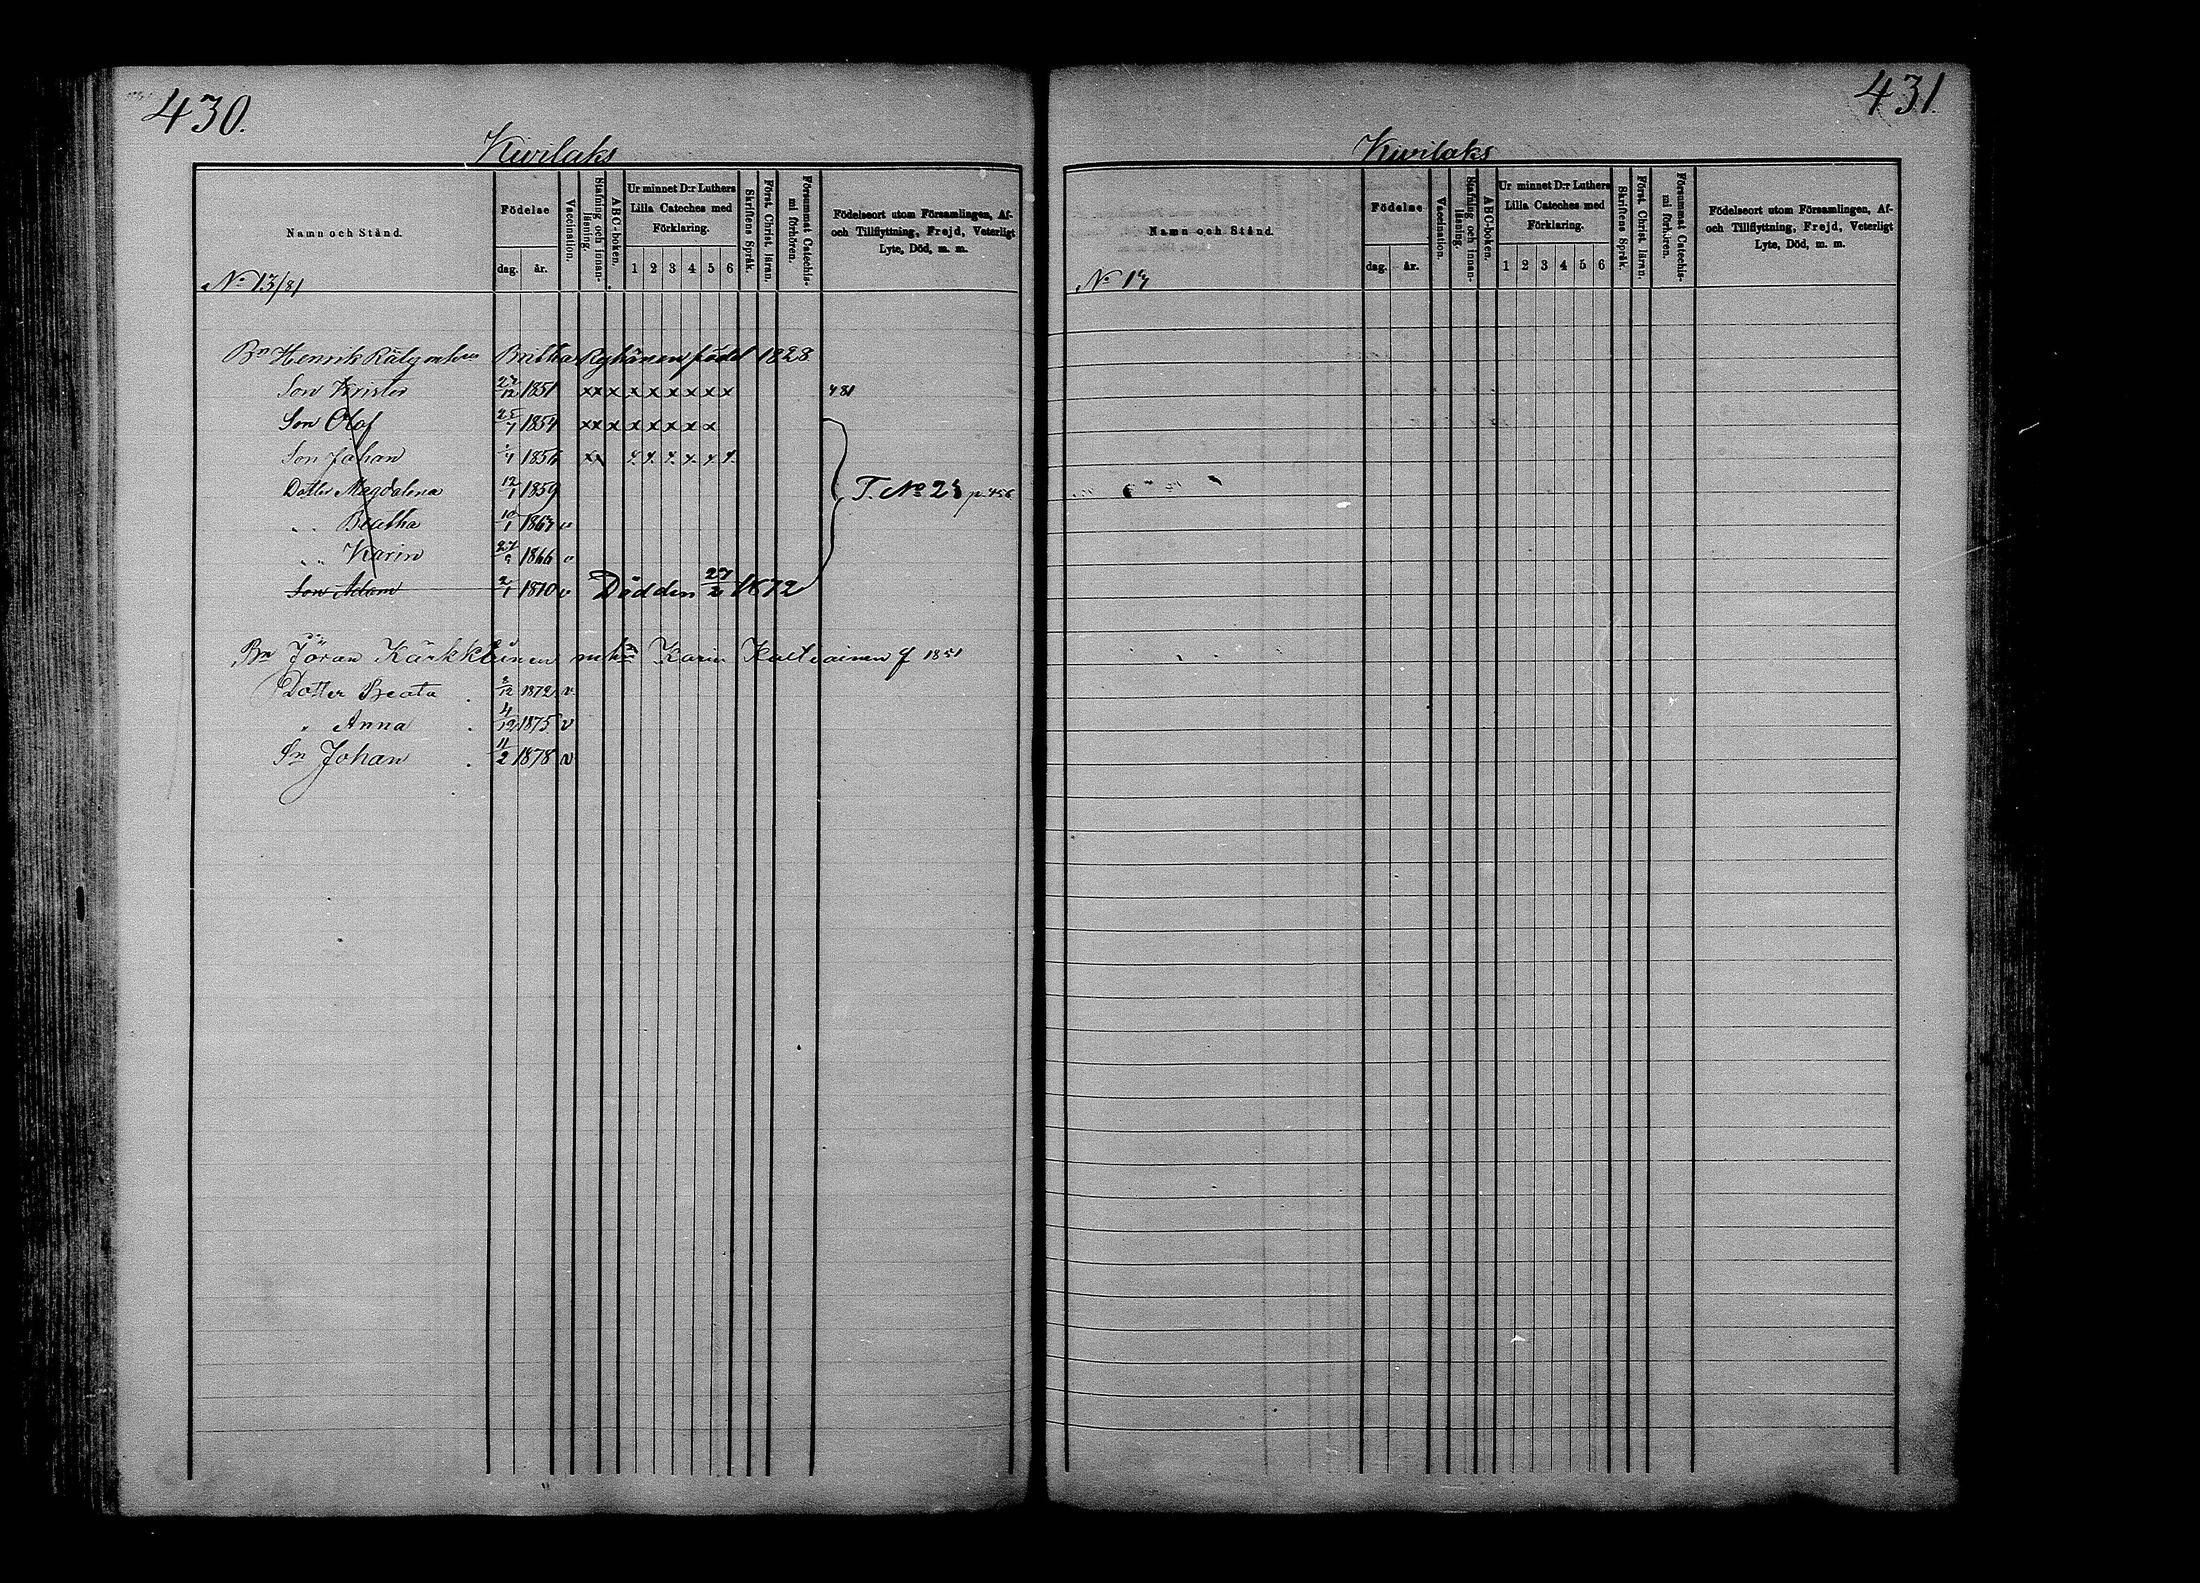 430.
Kivilaks
Namn och Stånd.
Födelse
dag. år.
Vaccination.
Stafning och innanläsning.
ABC-boken.
Ur minnet D:r Luthers Lilla Cateches med Förklaring.
1 2 3 4 5 6
Skriftens Språk.
Först. Christ. läran.
Försummat Catechismi förhören.
Födelseort utom Församlingen, Af- och Tillflyttning, Frejd, Veterligt Lyte, Död, m. m.
No 13/81
Bn Henrik Britha född 1828
Son Krister 27/12 1851 xx x x x x x x x 481
Son Olof 25/7 1854 xx x x x x x x
Son Johan 1856 xx
Dotter Magdalena 12/1 1859 T. No 2 p. 456
" Beatha 10/1 1863 v
" Karin 27/9 1866 v
Son Adam 2/1 1870 v Död den 27/2 1872
Bn Jöran Kärkkäinen m h Karin f 1851
Dotter Beata 2/12 1872 v
" Anna 4/12 1875 v
Sn Johan 11/2 1878 v
431.
Kivilaks
Namn och Stånd.
Födelse
dag. år.
Vaccination.
Stafning och innanläsning.
ABC-boken.
Ur minnet D:r Luthers Lilla Cateches med Förklaring.
1 2 3 4 5 6
Skriftens Språk.
Först. Christ. läran.
Försummat Catechismi förhören.
Födelseort utom Församlingen, Af- och Tillflyttning, Frejd, Veterligt Lyte, Död, m. m.
No 14